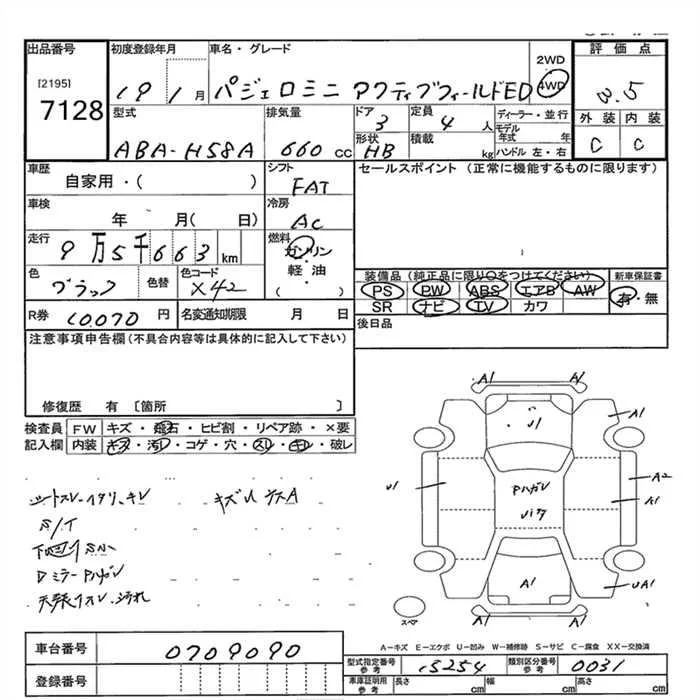 出品番号 初度登録年月 車名・グレード 2WD 評価点
[2195]
7128
19 1月 パジェロミニ アクティブフィールドED 4WD 3.5
型式 排気量 ドア 定員 ディーラー・並行 外装 内装
3 4人 モデル年式 年
ABA-H58A 660cc 形状 積載 C C
HB kg ハンドル 左・右
車歴 シフト セールスポイント (正常に機能するものに限ります)
自家用・( ) FAT
車検 冷房
年 月( 日) AC
走行 燃料
9万5千663km ガソリン
軽油
( )
色 色替 色コード 装備品 (純正品に限り○をつけてください) 新車保証書
ブラック X42 PS PW ABS エアB AW 有・無
SR ナビ TV カワ
R券 10.070円 名変通知期限 月 日 後日品
注意事項申告欄(不具合内容等は具体的に記入して下さい)
修復歴 有 〔箇所 〕
検査員 FW キズ・飛石・ヒビ割・リペア跡・×要
記入欄 内装 キズ・汚レ・コゲ・穴・スレ・キレ・破レ
A1 A1
U1 A1
U1 Pハガレ A2
A1
シートスレ、ヘタリ、キレ キズ凹 ナスA
S/T
Dミラー Pハガレ
天張りスレ、汚れ
A1 UA1
スペア A1 A1
A-キズ E-エクボ U-凹み W-補修跡 S-サビ C-腐食 XX-交換済
車台番号 0709090
型式指定番号 参考 15254 類別区分番号 参考 0031
登録番号 車庫証明用 参考 長さ cm 幅 cm 高さ cm